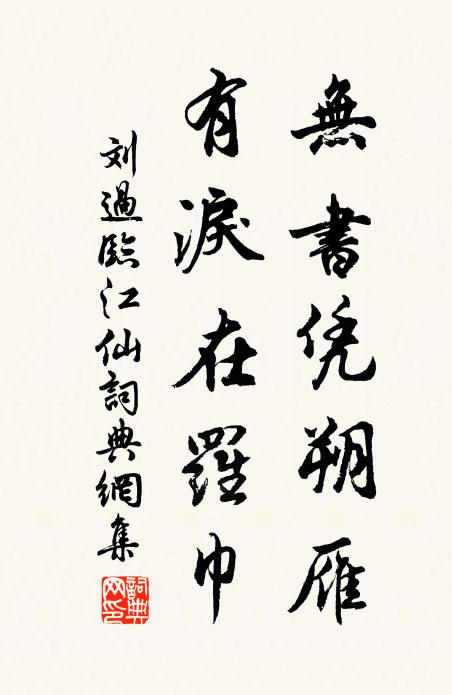 無書凭朔雁
有淚在羅巾
刘過臨江仙詞典網集
詞典网印